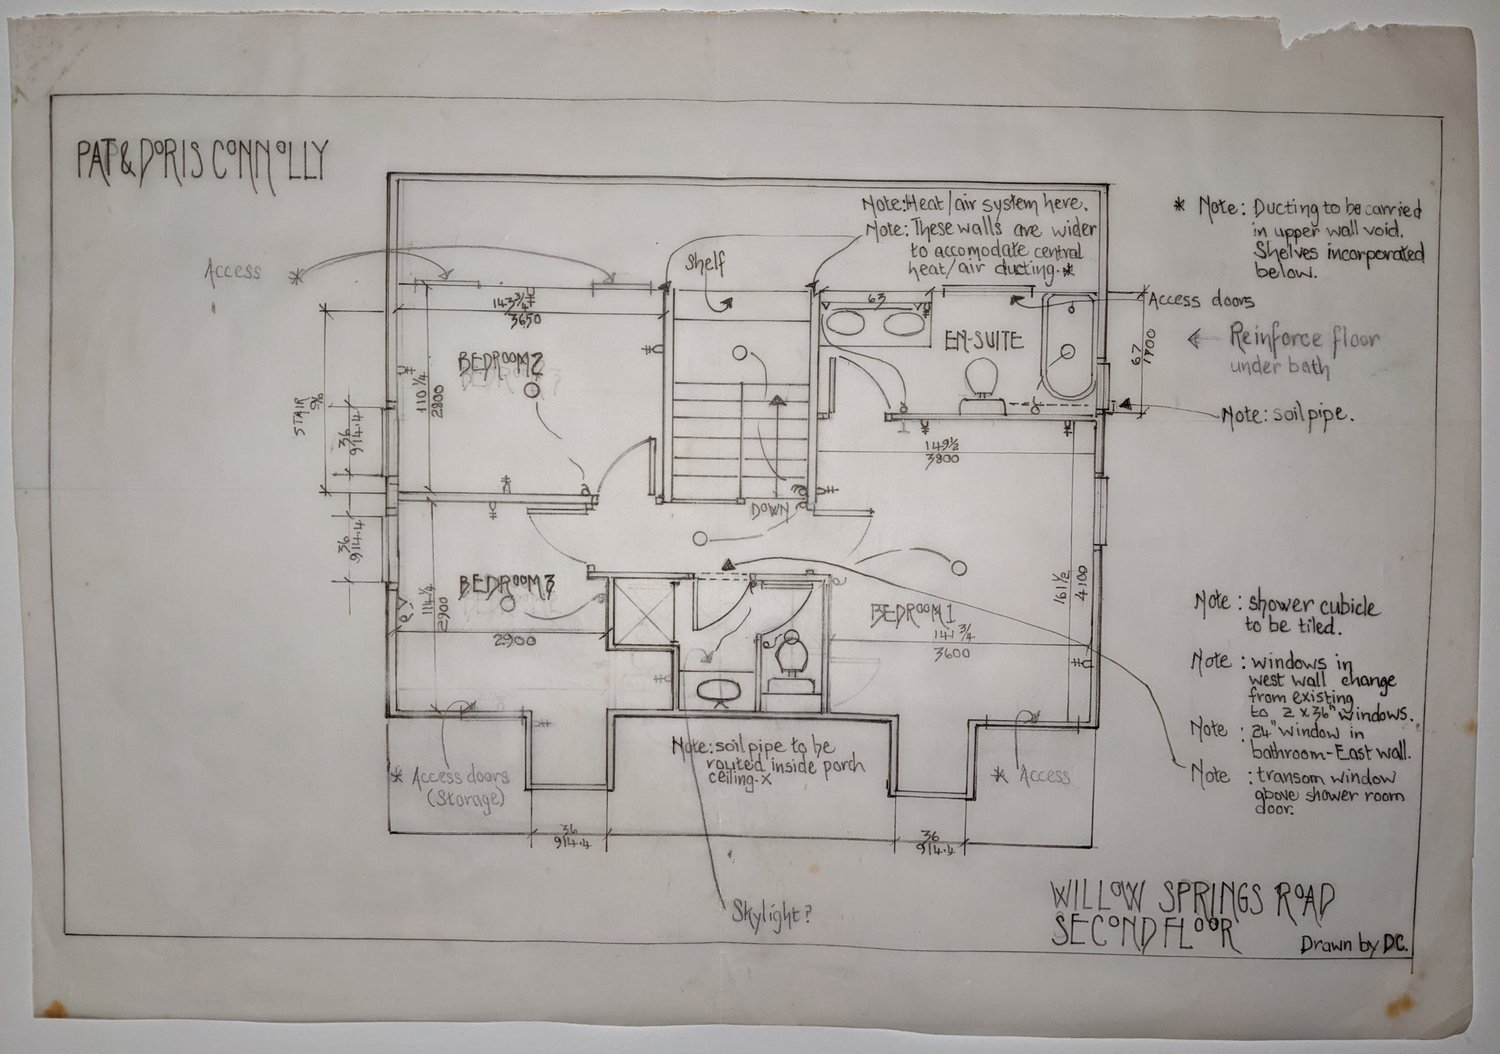 PAT & DORIS CONNOLLY
Note: Heat/air system here.
Note: These walls are wider
to accomodate central
heat/air ducting.*
* Note: Ducting to be carried
in upper wall void.
Shelves incorporated
below.
Access *
Shelf
143 3/4
3650
63
Access doors
EN-SUITE
67
1700
Reinforce floor
under bath
BEDROOM 2
110 1/4
2800
STAIR
36
914.4
Note: soil pipe.
149 1/2
3800
DOWN
36
914.4
BEDROOM 3
111 1/4
2900
2900
BEDROOM 1
141 3/4
3600
161 1/2
4100
Note: shower cubicle
to be tiled.
Note: windows in
west wall change
from existing
to 2 x 36" windows.
Note: 24" window in
bathroom-East wall.
Note: transom window
above shower room
door.
Note: soil pipe to be
routed inside porch
ceiling. x
* Access doors
(Storage)
* Access
36
914.4
36
914.4
Skylight?
WILLOW SPRINGS ROAD
SECOND FLOOR
Drawn by DC.